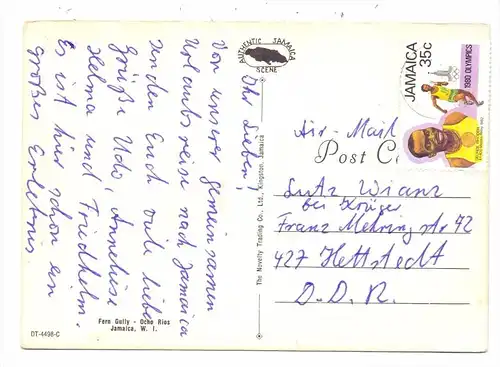 AUTHENTIC JAMAICA
SCENE
Ihr Lieben!
Von unserer gemeinsamen
Urlaubsreise nach Jamaica
senden Euch viele liebe
Grüße Udo, Anneliese
Helma und Friedhelm.
Es ist hier schon ein
großes Erlebnis.
Fern Gully - Ocho Rios
Jamaica, W. I.
DT-4498-C
The Novelty Trading Co., Ltd., Kingston, Jamaica
JAMAICA
35c
1980 OLYMPICS
Air-Mail
Post C
Lutz Wianz
bei Krüger
Franz Mehring str 42
427 Hettstedt
D.D.R.